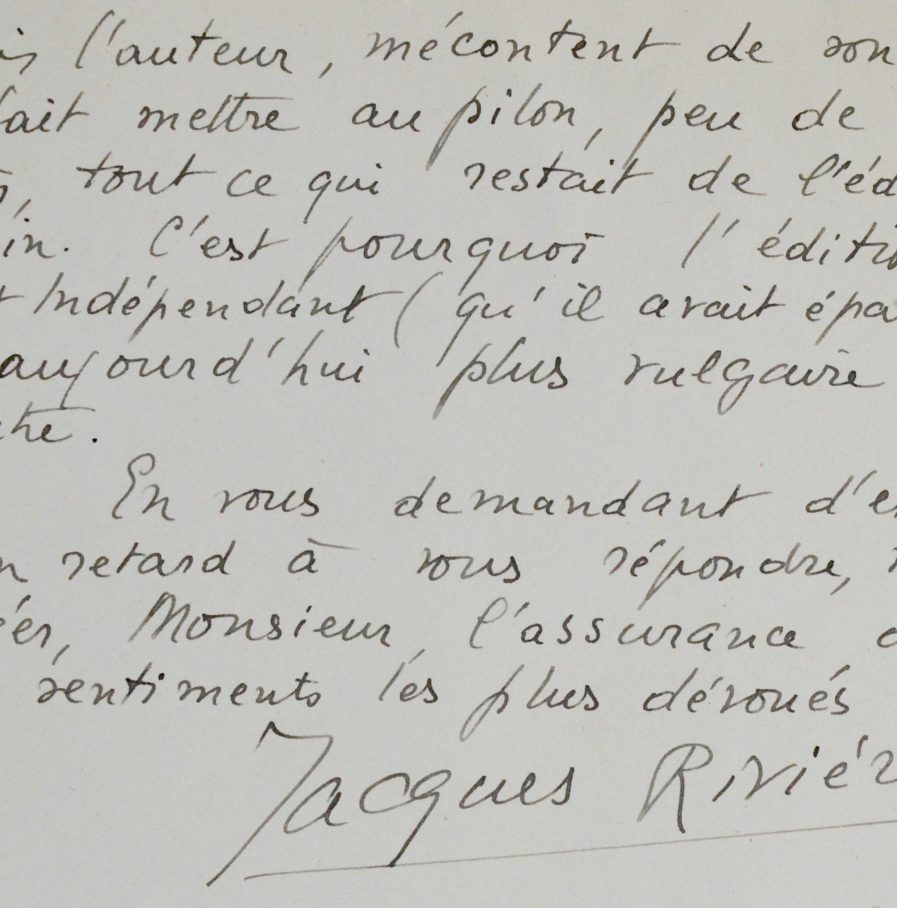 l'auteur, mécontent de son
fait mettre au pilon, peu de
tout ce qui restait de l'éd
in. C'est pourquoi l'éditi
t Indépendant (qu'il avait épa
aujourd'hui plus vulgaire
che.
En vous demandant d'e
n retard à vous répondre,
éer, Monsieur, l'assurance d
sentiments les plus dévoués
Jacques Rivièr